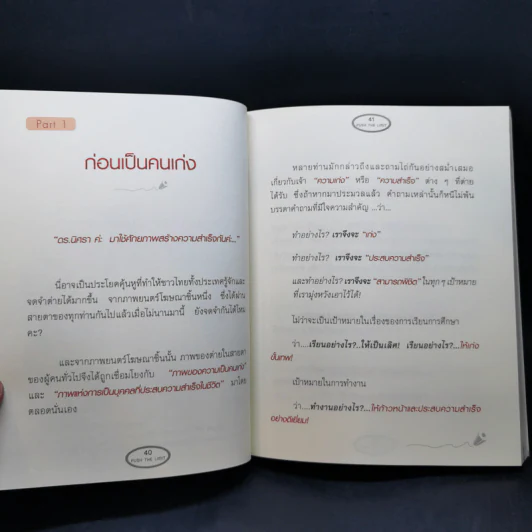 Part 1
ก่อนเป็นคนเก่ง
"ดร.นิศรา ค่ะ มาใช้ศักยภาพสร้างความสำเร็จกันค่ะ..."
นี่อาจเป็นประโยคคุ้นหูที่ทำให้ชาวไทยทั้งประเทศรู้จักและ
จดจำดายได้มากขึ้น จากภาพยนตร์โฆษณาชิ้นหนึ่ง ซึ่งได้ผ่าน
สายตาของทุกท่านกันไปแล้วเมื่อไม่นานมานี้ ยังจดจำกันได้ไหม
คะ?
และจากภาพยนตร์โฆษณาชิ้นนั้น ภาพของดายในสายตา
ของผู้คนทั่วไปจึงได้ถูกเชื่อมโยงกับ "ภาพของความเป็นคนเก่ง"
และ "ภาพแห่งการเป็นบุคคลที่ประสบความสำเร็จในชีวิต" มาโดย
ตลอดนั่นเอง
40
PUSH THE LIMIT
41
PUSH THE LIMIT
หลายท่านมักกล่าวถึงและถามไถ่กันอย่างสม่ำเสมอ
เกี่ยวกับเจ้า "ความเก่ง" หรือ "ความสำเร็จ" ต่าง ๆ ที่ดาย
ได้รับ ซึ่งถ้าหากมาประมวลแล้ว คำถามเหล่านั้นก็หนีไม่พ้น
บรรดาคำถามที่มีใจความสำคัญ ...ว่า...
ทำอย่างไร? เราจึงจะ "เก่ง"
ทำอย่างไร? เราจึงจะ "ประสบความสำเร็จ"
และทำอย่างไร? เราจึงจะ "สามารถพิชิต" ในทุก ๆ เป้าหมาย
ที่เรามุ่งหวังเอาไว้ได้!
ไม่ว่าจะเป็นเป้าหมายในเรื่องของการเรียนการศึกษา
ว่า....เรียนอย่างไร?...ให้เป็นเลิศ! เรียนอย่างไร?...ให้เก่ง
ขั้นเทพ!
เป้าหมายในการทำงาน
ว่า.....ทำงานอย่างไร?...ให้ก้าวหน้าและประสบความสำเร็จ
อย่างดีเยี่ยม!